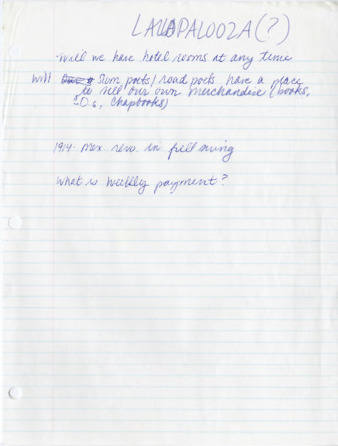 LALAPALOOZA(?)
Will we have hotel rooms at any time
Will Slam poets/road poets have a place
to sell our own merchandise (books,
CDs, chapbooks)
1914. Mex. revo. in full swing
What is weekly payment?